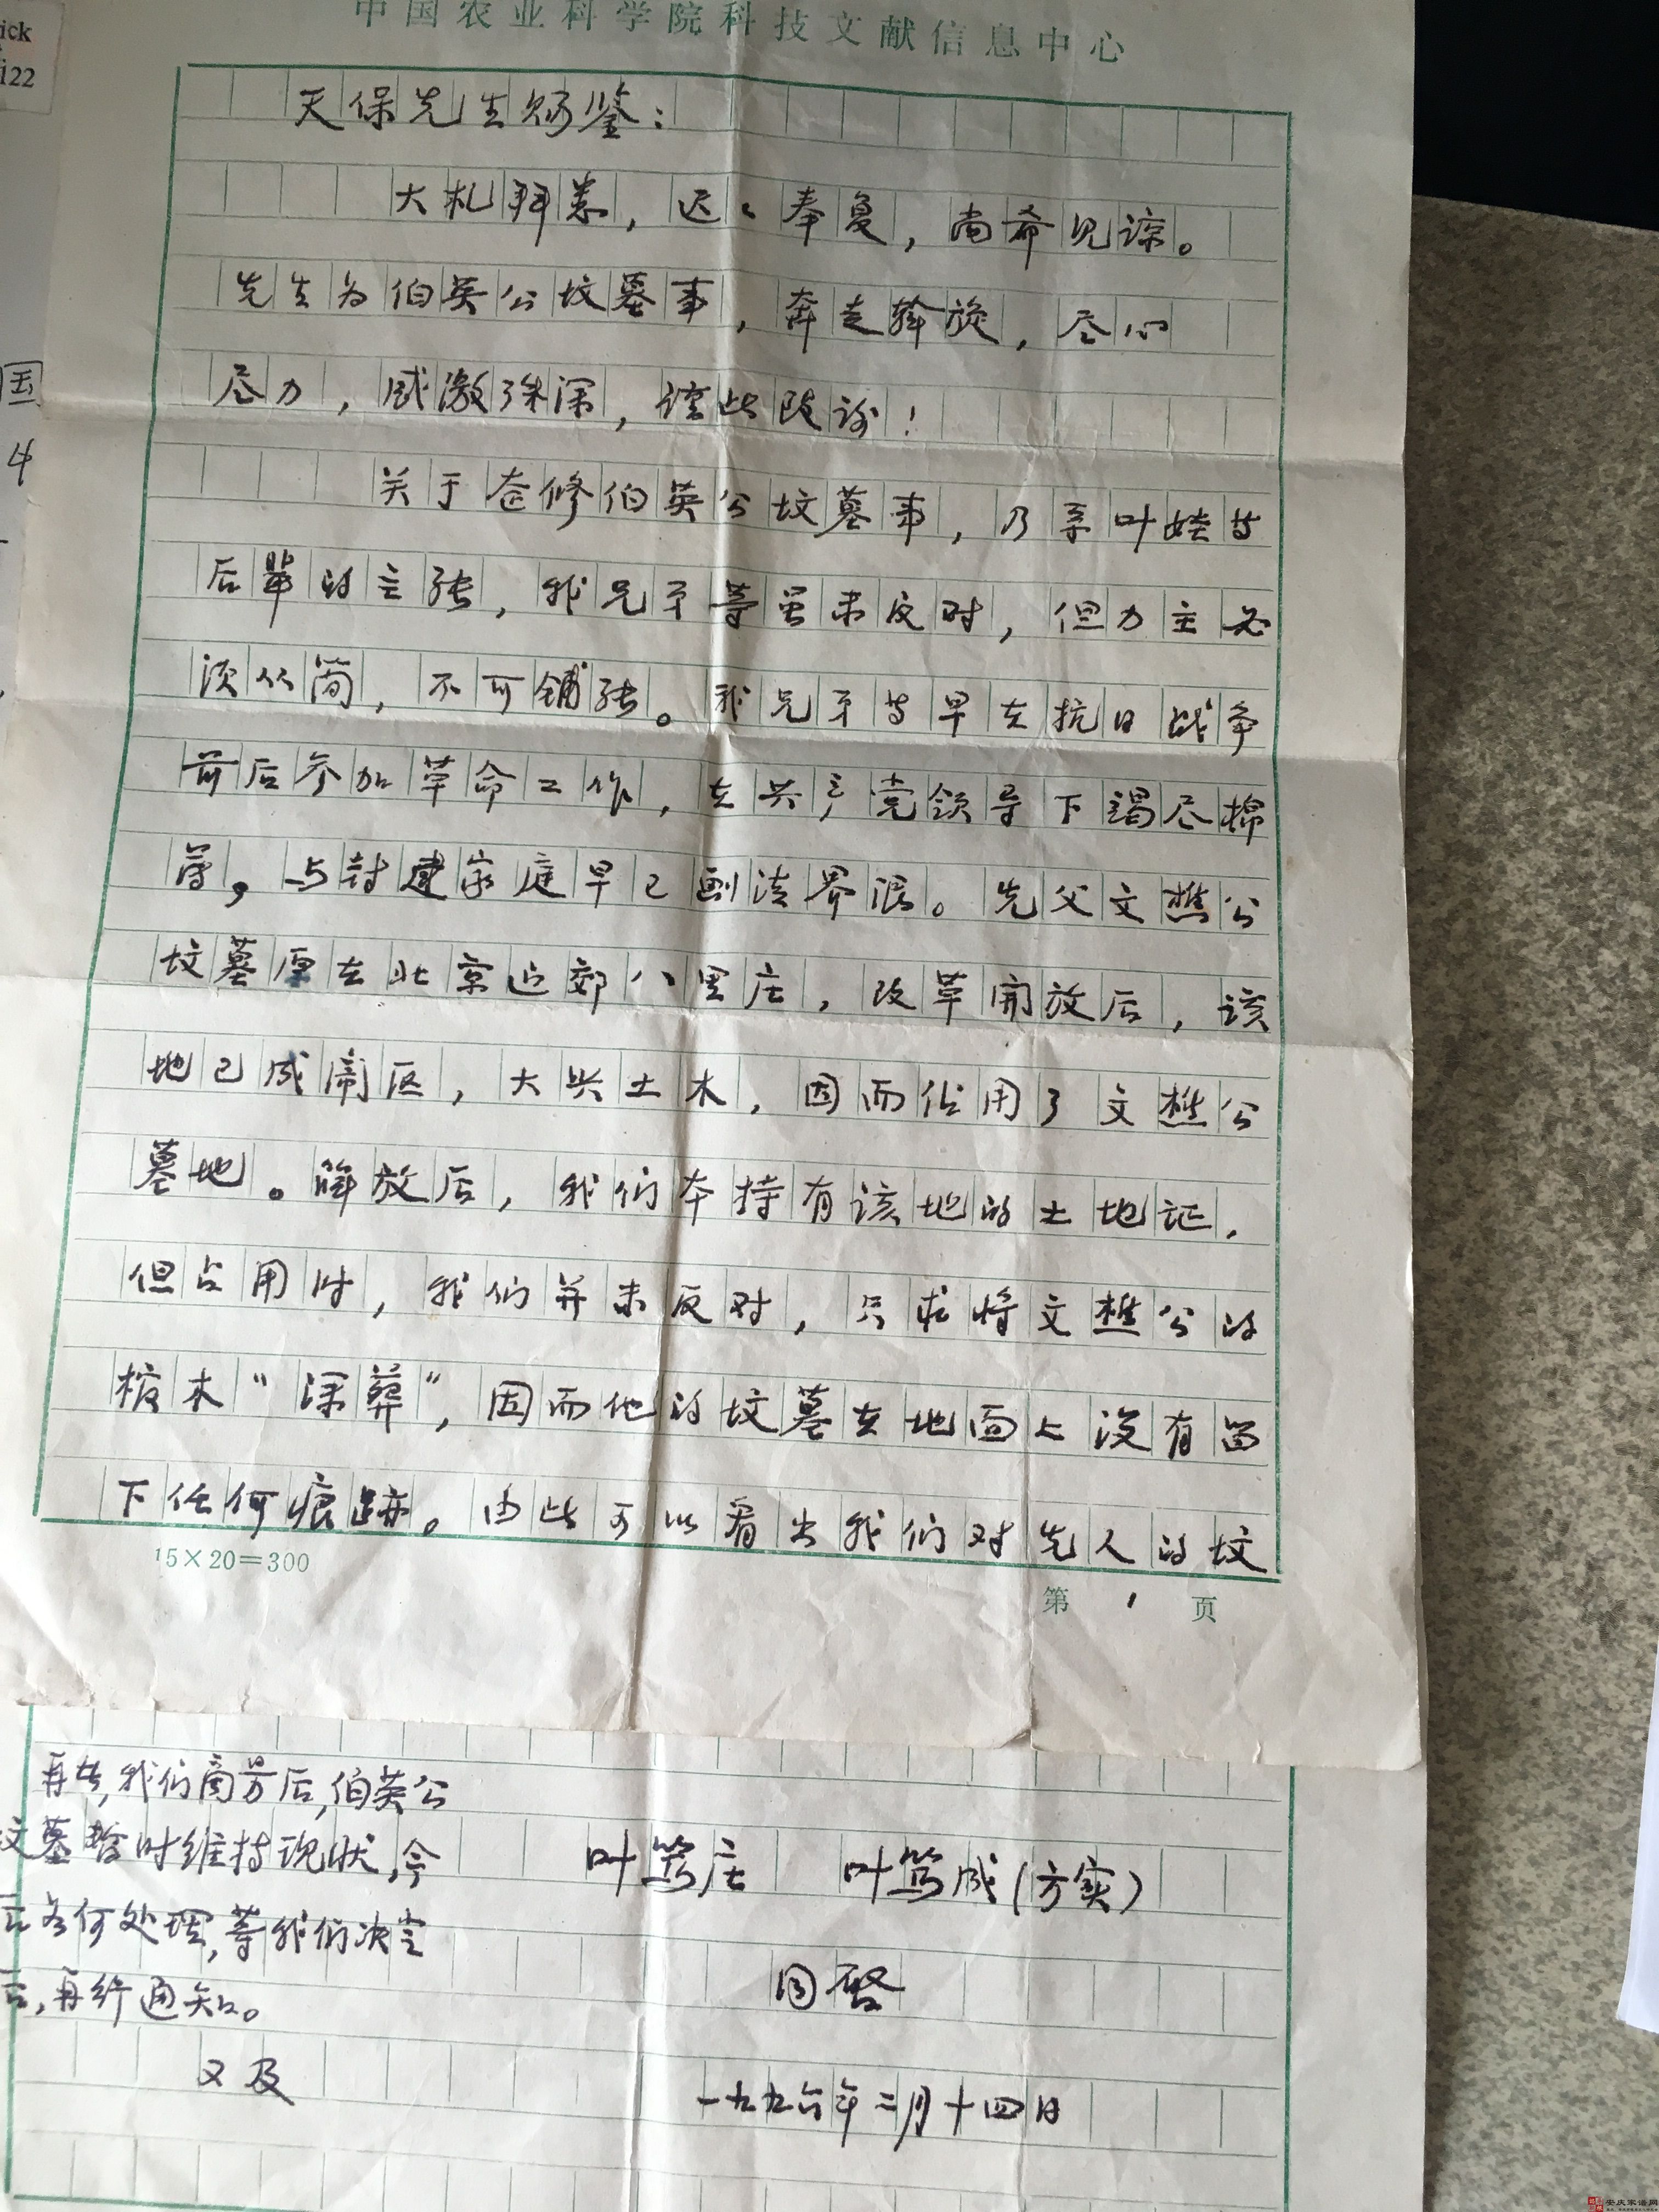 ick
i22
国
4
中国农业科学院科技文献信息中心
天保先生赐鉴：
大札拜悉，迟迟奉复，尚希见谅。
先生为伯英公坟墓事，奔走斡旋，尽心
尽力，感激殊深，谨此致谢！
关于查修伯英公坟墓事，乃系叶娃等
后辈的主张，我兄弟等虽未反对，但力主必
须从简，不可铺张。我兄弟等早在抗日战争
前后参加革命工作，在共产党领导下竭尽棉
薄，与封建家庭早已划清界限。先父文樵公
坟墓原在北京近郊八里庄，改革开放后，该
地已成闹区，大兴土木，因而佔用了文樵公
墓地。解放后，我们本持有该地的土地证，
但占用时，我们并未反对，只求将文樵公的
棺木“深葬”，因而他的坟墓在地面上没有留
下任何痕迹。由此可以看出我们对先人的坟
15×20=300
第 1 页
再者，我们商量后，伯英公
坟墓暂时维持现状，今
后如何处理，等我们决定
后，再行通知。
又及
叶笃庄 叶笃成（方实）
同启
一九九六年二月十四日
安庆家谱网